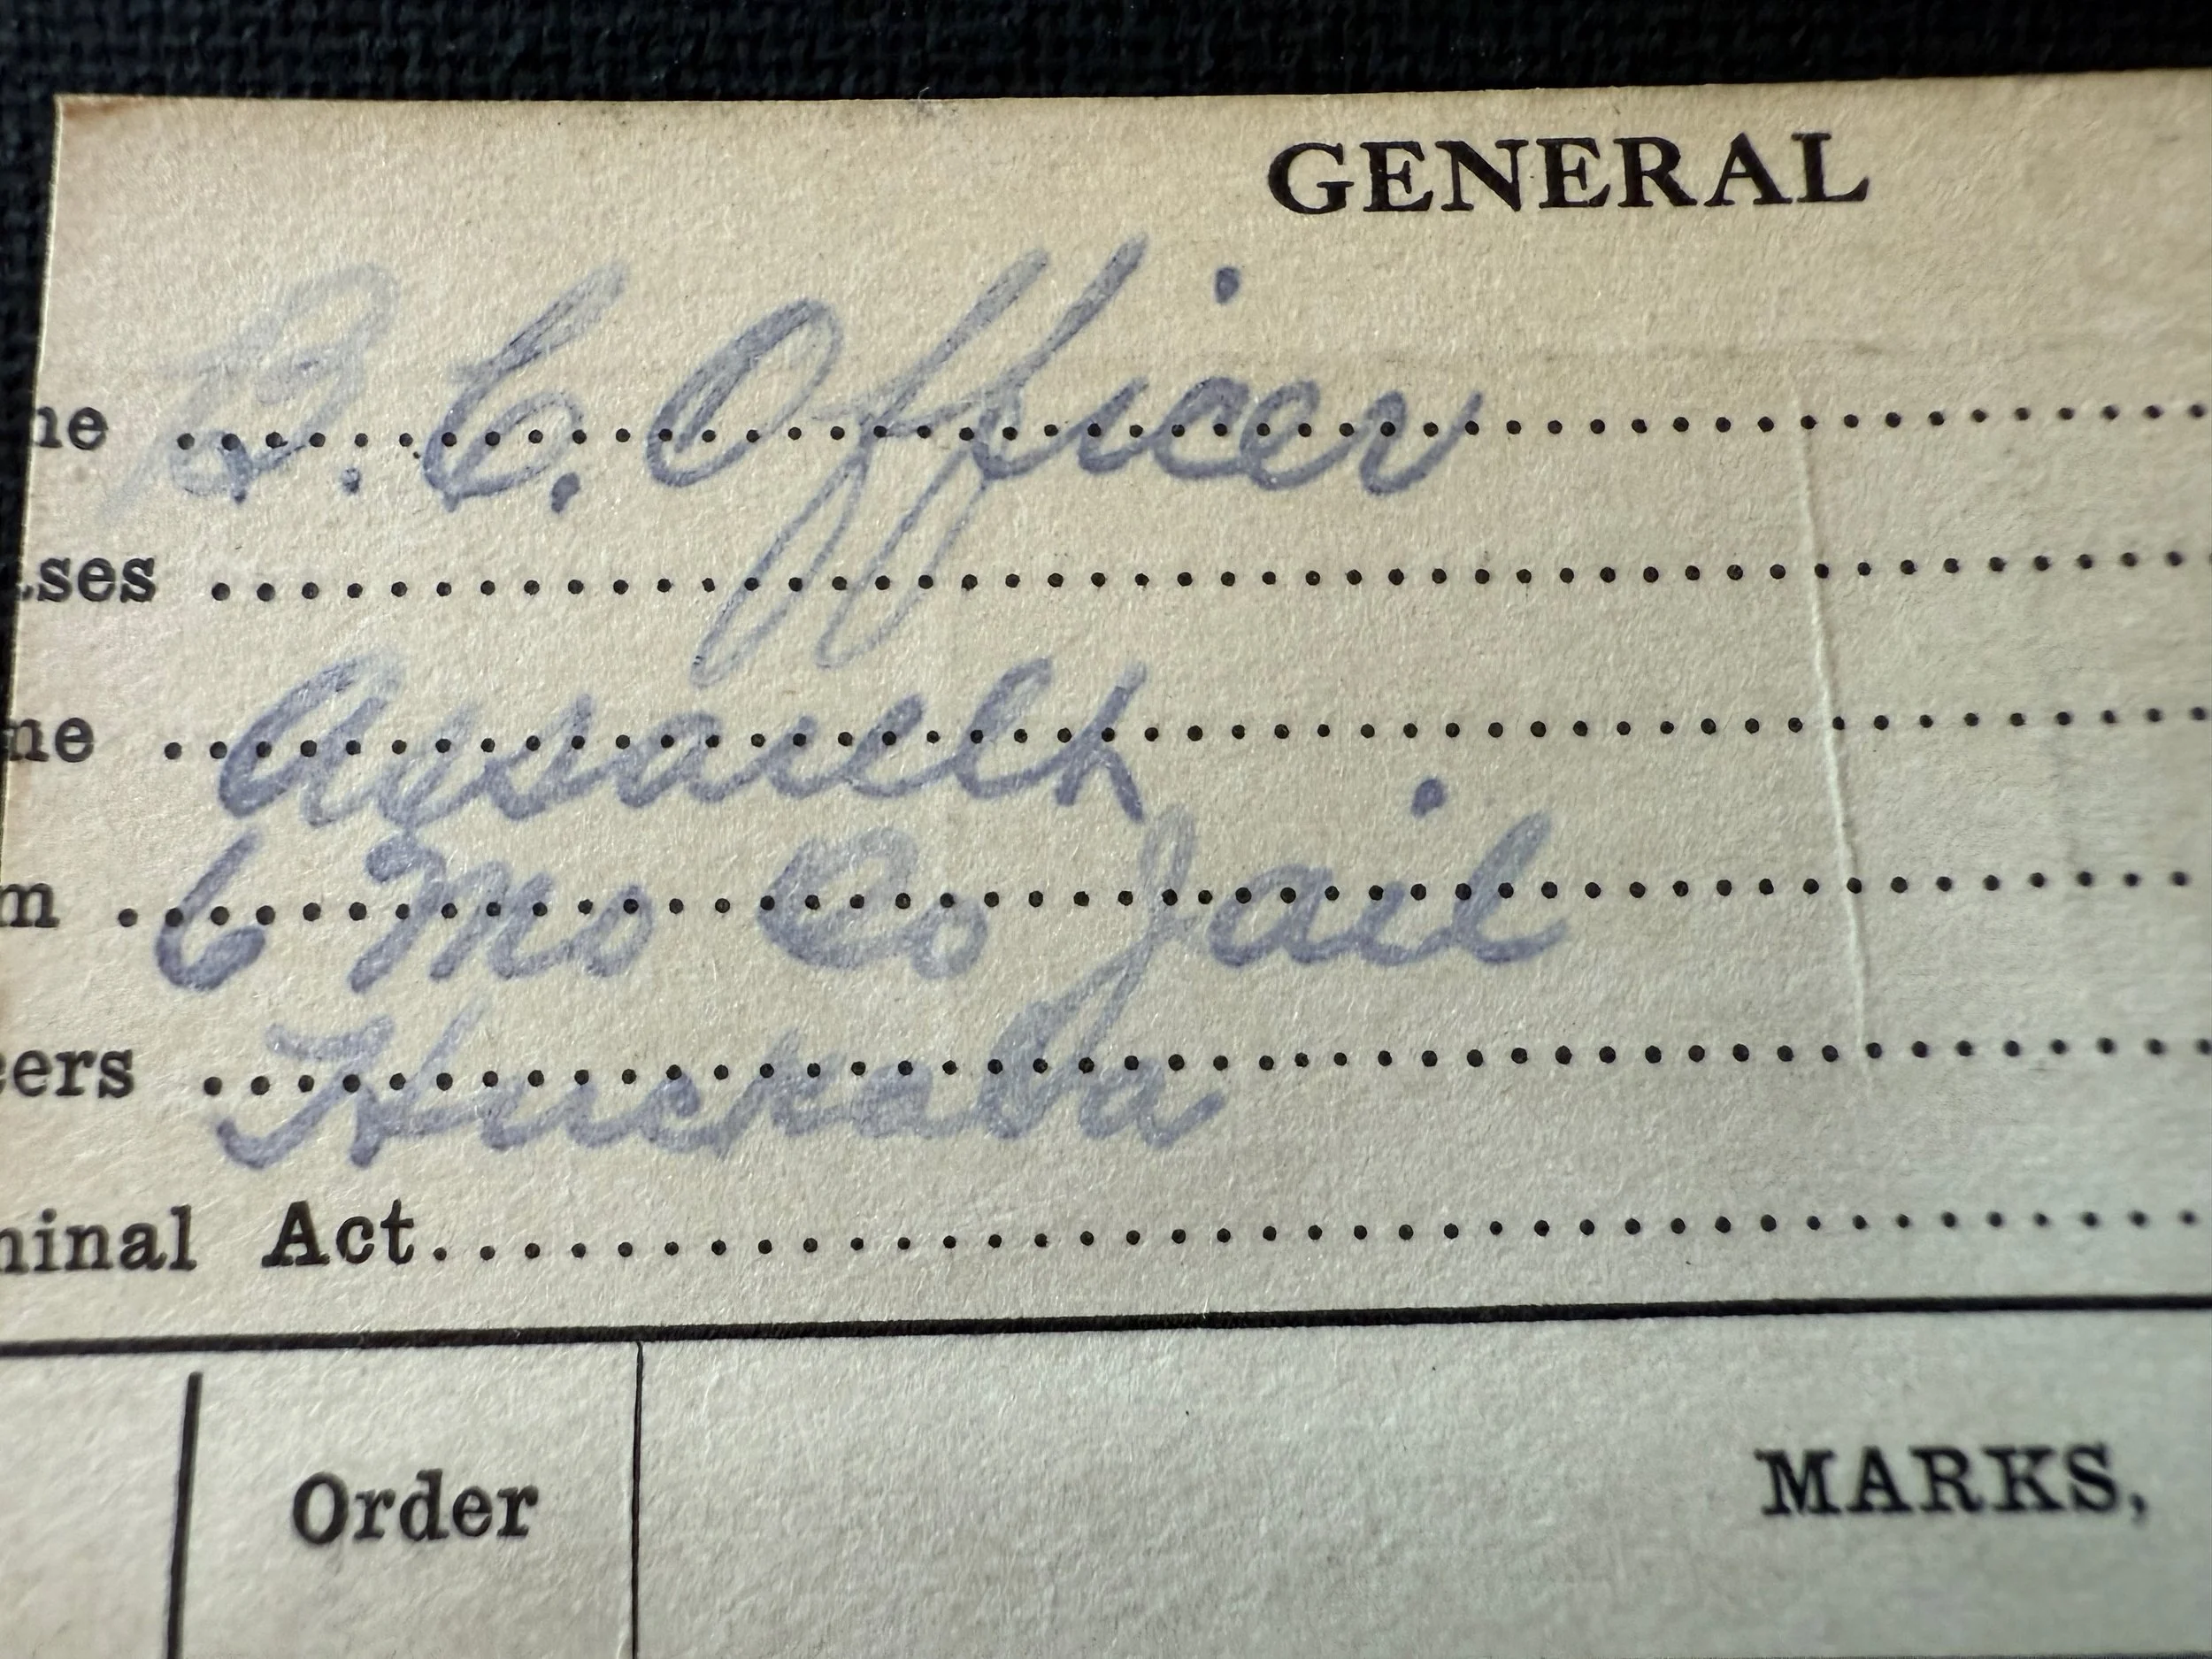 GENERAL
ne B. C. Officer....................
ses ....................
ne Assault....................
m 6 Mo Co Jail....................
cers Huckaba....................
minal Act....................
Order
MARKS,